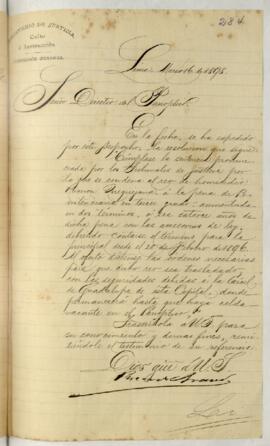 284
MINISTERIO DE JUSTICIA
Culto
é Instrucción
DIRECCIÓN GENERAL
Lima, 16 de 189
Señor Director del Panóptico.
En la fecha, se ha expedido
por este despacho la resolución que sigue:
"Cúmplase la sentencia pronun-
ciada por los Tribunales de justicia por
la que se condena al reo de homicidio
Ramon á la pena de Pe-
nitenciaría en tercer grado, aumentada
en dos términos, ó sea catorce años de
dicha pena con las accesorias de ley,
debiendo contarse el término para la
principal desde el de de 1896.
las órdenes necesarias
para que dicho reo sea trasladado
con las seguridades debidas á la Cárcel
de Guadalupe de esta Capital, donde
permanecerá hasta que haya celda
vacante en el Panóptico".
Trascríbola á US. para
su conocimiento y demas fines, remi-
tiéndole el testimonio de su referencia.
Dios gue. á US.